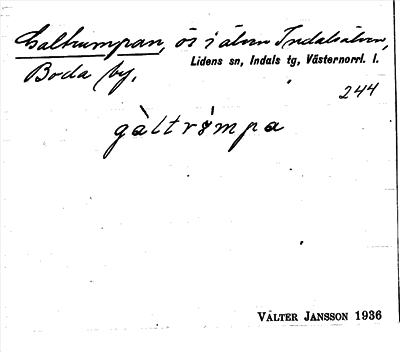 Galtrumpan, ös i älven Indalsälven,
Lidens sn, Indals tg, Västernorrl. l.
Boda by.
244
gàltrùmpa
VALTER JANSSON 1936